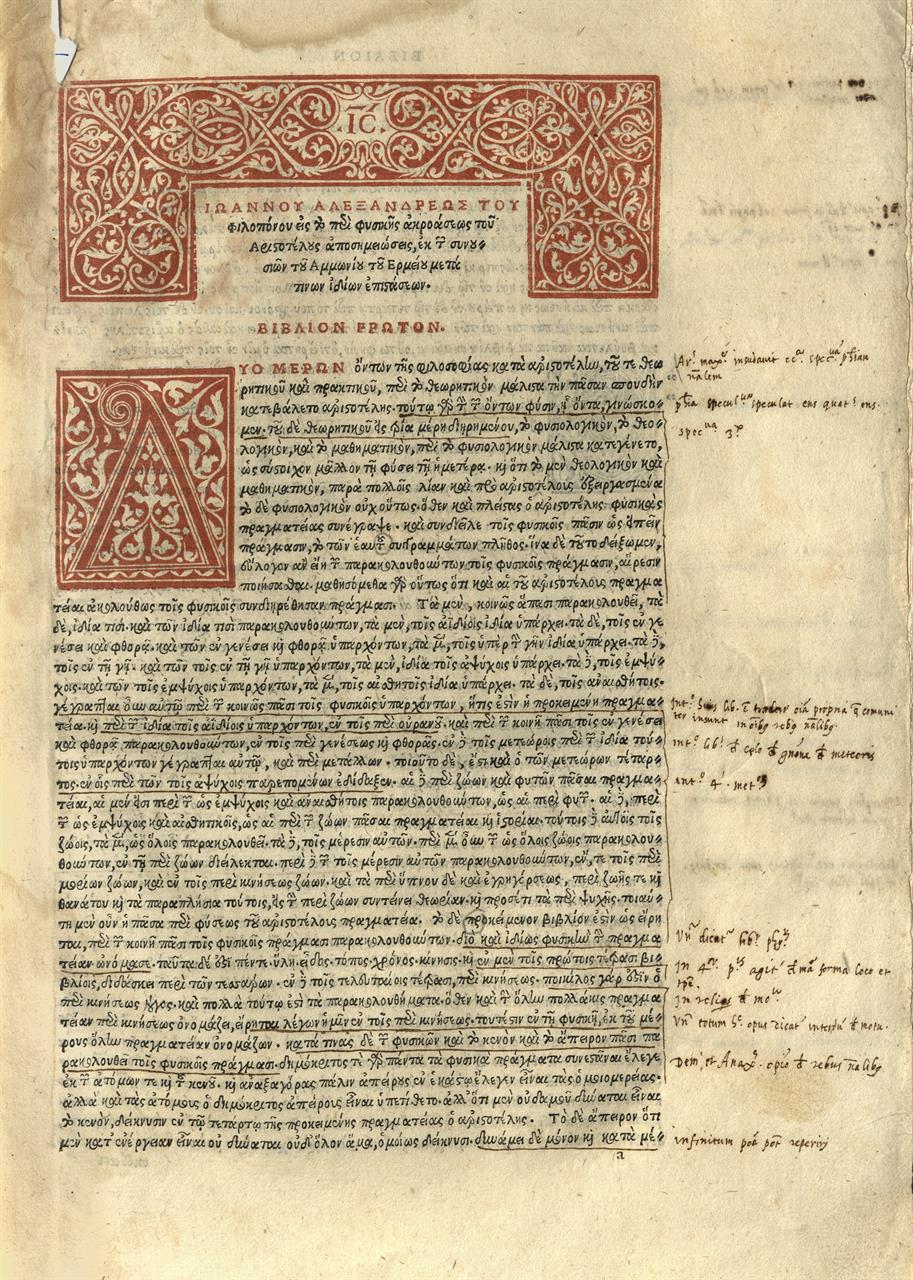 IC
ΙΩΑΝΝΟΥ ΑΛΕΞΑΝΔΡΕΩΣ ΤΟΥ
φιλοπόνου εἰς τὸ περὶ φυσικῆς ἀκροάσεως τοῦ
Ἀριστοτέλους ἀποσημειώσεις, ἐκ τῶν συνου-
σιῶν τοῦ Ἀμμωνίου τοῦ Ἑρμείου μετά
τινων ἰδίων ἐπιστάσεων.
ΒΙΒΛΙΟΝ ΠΡΩΤΟΝ.
ΔΥΟ ΜΕΡΩΝ ὄντων τῆς φιλοσοφίας κατὰ ἀριστοτέλην, τοῦ τε θεω
ρητικοῦ καὶ πρακτικοῦ, περὶ τὸ θεωρητικὸν μάλιστα τὴν πᾶσαν σπουδὴν
κατεβάλετο ἀριστοτέλης. τούτῳ γὰρ τὴν τῶν ὄντων φύσιν, ᾗ ὄντα, γινώσκο-
μεν. τοῦ δὲ θεωρητικοῦ εἰς τρία μέρη διῃρημένου, τὸ φυσιολογικὸν, τὸ θεο-
λογικὸν, καὶ τὸ μαθηματικὸν, περὶ τὸ φυσιολογικὸν μάλιστα κατεγένετο,
ὡς σύστοιχον μᾶλλον τῇ φύσει τῇ ἡμετέρᾳ. καὶ ὅτι τὸ μὲν θεολογικὸν καὶ
μαθηματικὸν, παρὰ πολλοῖς λίαν καὶ πρὸ ἀριστοτέλους ἐξειργασμένα
τὸ δὲ φυσιολογικὸν οὐχ οὕτως. ὅθεν καὶ πλείστας ὁ ἀριστοτέλης φυσικὰς
πραγματείας συνέγραψε. καὶ συνδιεῖλε τοῖς φυσικοῖς πᾶσιν ὡς εἰπεῖν
πράγμασιν, τὸ τῶν ἑαυτοῦ συγγραμμάτων πλῆθος. ἵνα δὲ τοῦτο δείξωμεν,
εὔλογον ἂν εἴη τῶν παρακολουθούντων τοῖς φυσικοῖς πράγμασιν, διαίρεσιν
ποιήσασθαι. μαθησόμεθα γὰρ οὕτως ὅτι καὶ αἱ τοῦ ἀριστοτέλους πραγμα
τεῖαι ἀκολούθως τοῖς φυσικοῖς συνδιῃρέθησαν πράγμασι. Τὰ μὲν, κοινῶς ἅπασι παρακολουθεῖ, τὰ
δὲ, ἰδίᾳ τισι. καὶ τῶν ἰδίᾳ τισὶ παρακολουθούντων, τὰ μὲν, τοῖς ἀϊδίοις ἰδίᾳ ὑπάρχει. τὰ δὲ, τοῖς ἐν γε
νέσει καὶ φθορᾷ. καὶ τῶν ἐν γενέσει καὶ φθορᾷ ὑπαρχόντων, τὰ μὲν, τοῖς ὑπὲρ τὴν γῆν ἰδίᾳ ὑπάρχει. τὰ δὲ,
τοῖς ἐν τῇ γῇ. καὶ τῶν τοῖς ἐν τῇ γῇ ὑπαρχόντων, τὰ μὲν, ἰδίᾳ τοῖς ἀψύχοις ὑπάρχει. τὰ δὲ, τοῖς ἐμψύ-
χοις. καὶ τῶν τοῖς ἐμψύχοις ὑπαρχόντων, τὰ μὲν, τοῖς αἰσθητοῖς ἰδίᾳ ὑπάρχει. τὰ δὲ, τοῖς ἀναισθήτοις.
γέγραπται οὖν αὐτῷ περὶ τῶν κοινῶς πᾶσι τοῖς φυσικοῖς ὑπαρχόντων, ἥτις ἐστὶν ἡ προκειμένη πραγμα-
τεία. καὶ περὶ τῶν ἰδίᾳ τοῖς ἀϊδίοις ὑπαρχόντων, ἐν τοῖς περὶ οὐρανοῦ. καὶ περὶ τῶν κοινῇ πᾶσι τοῖς ἐν γενέσει
καὶ φθορᾷ παρακολουθούντων, ἐν τοῖς περὶ γενέσεως καὶ φθορᾶς. ἐν δὲ τοῖς μετεώροις περὶ τῶν ἰδίᾳ τού-
τοις ὑπαρχόντων γέγραπται αὐτῷ, καὶ περὶ μετάλλων. τοιοῦτο δὲ, ἐστὶ καὶ ὁ τῶν μετεώρων τέταρ-
τος. ἐν οἷς περὶ τῶν τοῖς ἀψύχοις παρεπομένων ἐδίδαξεν. αἱ δὲ περὶ ζώων καὶ φυτῶν πᾶσαι πραγμα-
τεῖαι, αἱ μέν εἰσι περὶ τῶν ὡς ἐμψύχοις καὶ ἀναισθήτοις παρακολουθούντων, ὡς αἱ περὶ φυτῶν. αἱ δὲ, περὶ
τῶν ὡς ἐμψύχοις καὶ αἰσθητικοῖς, ὡς αἱ περὶ τῶν ζώων πᾶσαι πραγματεῖαι καὶ ἱστορίαι. τούτοις δὲ αὐτοῖς τοῖς
ζώοις, τὰ μὲν, ὡς ὅλοις παρακολουθεῖ. τὰ δὲ, τοῖς μέρεσιν αὐτῶν. περὶ μὲν οὖν τῶν ὡς ὅλοις ζώοις παρακολου-
θούντων, ἐν τῇ περὶ ζώων διείλεκται. περὶ δὲ τῶν τοῖς μέρεσιν αὐτῶν παρακολουθούντων, ἔν, τε τοῖς περὶ
μορίων ζώων, καὶ ἐν τοῖς περὶ κινήσεως ζώων. καὶ τὰ περὶ ὕπνου δὲ καὶ ἐγρηγόρσεως, περὶ ζωῆς τε καὶ
θανάτου καὶ τὰ παραπλήσια τούτοις, εἰς τὴν περὶ ζώων συντείνει θεωρίαν. καὶ προσέτι τὰ περὶ ψυχῆς. τοιαύ-
τη μὲν οὖν ἡ πᾶσα περὶ φύσεως τοῦ ἀριστοτέλους πραγματεία. τὸ δὲ προκείμενον βιβλίον ἐστὶν ὡς εἴρη
ται, περὶ τῶν κοινῇ πᾶσι τοῖς φυσικοῖς πράγμασι παρακολουθούντων. διὸ καὶ ἰδίως φυσικὴν τὴν πραγμα
τείαν ὠνόμασε. ταῦτα δέ ἐστι πέντε. ὕλη. εἶδος. τόπος. χρόνος. κίνησις. καὶ ἐν μὲν τοῖς πρώτοις τέτρασι βι-
βλίοις, διδάσκει περὶ τῶν τεσσάρων. ἐν δὲ τοῖς τελευταίοις τέτρασι, περὶ κινήσεως. ποικίλος γάρ ἐστιν ὁ
περὶ κινήσεως λόγος. καὶ πολλὰ τούτῳ ἐστὶ τὰ παρακολουθήματα. ὅθεν καὶ τὴν ὅλην πολλάκις πραγμα
τείαν περὶ κινήσεως ὀνομάζει, εἴρηται λέγων ἡμῖν ἐν τοῖς περὶ κινήσεως. τουτέστιν ἐν τῇ φυσικῇ, ἐκ τοῦ μέ-
ρους ὅλην πραγματείαν ὀνομάζων. κατά τινας δὲ τῶν φυσικῶν καὶ τὸ κενὸν καὶ τὸ ἄπειρον πᾶσι πα
ρακολουθεῖ τοῖς φυσικοῖς πράγμασι. δημόκριτος τε γὰρ πάντα τὰ φυσικὰ πράγματα συνεστάναι ἔλεγε
ἐκ τῶν ἀτόμων τε καὶ τοῦ κενοῦ. καὶ ἀναξαγόρας πάλιν ἀπείρους ἐν ἑκάστῳ ἔλεγεν εἶναι τὰς ὁμοιομερείας.
ἀλλὰ καὶ τὰς ἀτόμους ὁ δημόκριτος ἀπείρους εἶναι ὑπετίθετο. ἀλλ' ὅτι μὲν οὐδαμοῦ δύναται εἶναι
τὸ κενὸν, δείκνυσιν ἐν τῷ τετάρτῳ τῆς προκειμένης πραγματείας ὁ ἀριστοτέλης. Τὸ δὲ ἄπειρον ὅτι
μὲν κατ' ἐνέργειαν εἶναι οὐ δύναται οὐδ' ὅλον ἅμα, ὁμοίως δείκνυσι. δυνάμει δὲ μόνον καὶ κατὰ μέ-
a
infinitum